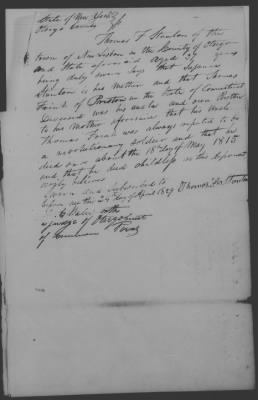 State of New York
Otsego County SS
Thomas F Stanton of the
town of New Lisbon in the County of Otsego
and State aforesaid Aged years
being duly sworn says that
Stanton is his Mother and that Thomas
of Preston in the State of Connecticut
Deceased was his uncle and own Brother
to his Mother aforesaid that his uncle
Thomas was always reputed to be
a revolutionary soldier and that he
died on or about the 18th day of May 1815
and that he died childless as this deponent
verily believes
Sworn and Subscribed to
before me the 29 day of April 1839 Thomas Stanton
of the
of Common Pleas